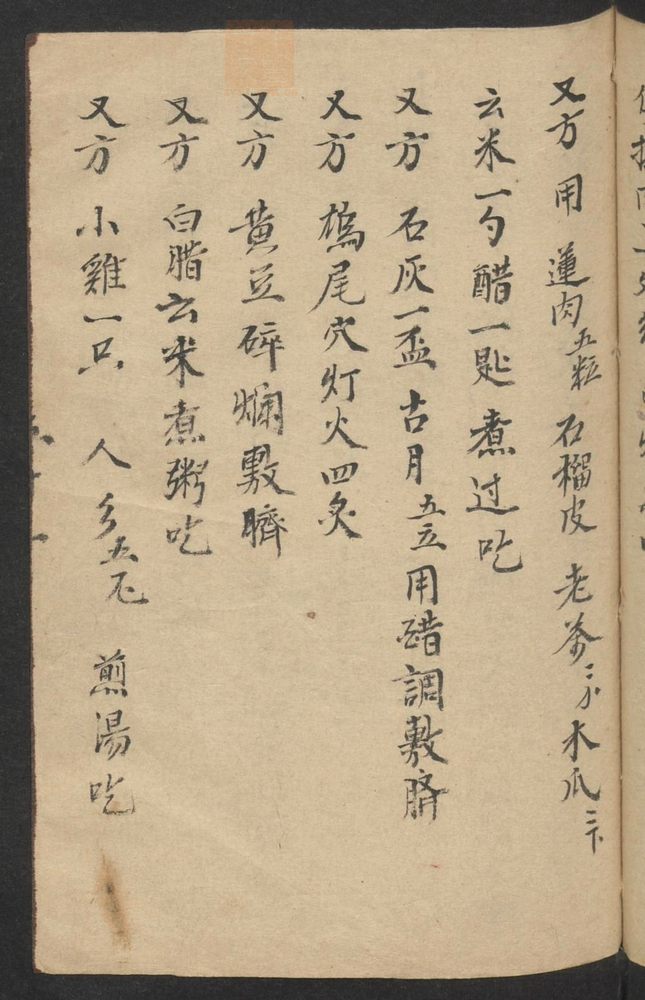 又方 用 蓮肉五粒 石榴皮 老茶三分 木瓜三卞
云米一勺醋一匙煮过吃
又方 石灰一盃 古月五立用醋調敷臍
又方 鳩尾穴灯火四炙
又方 黄豆碎爛敷臍
又方 白腊云米煮粥吃
又方 小雞一只 人 煎湯吃